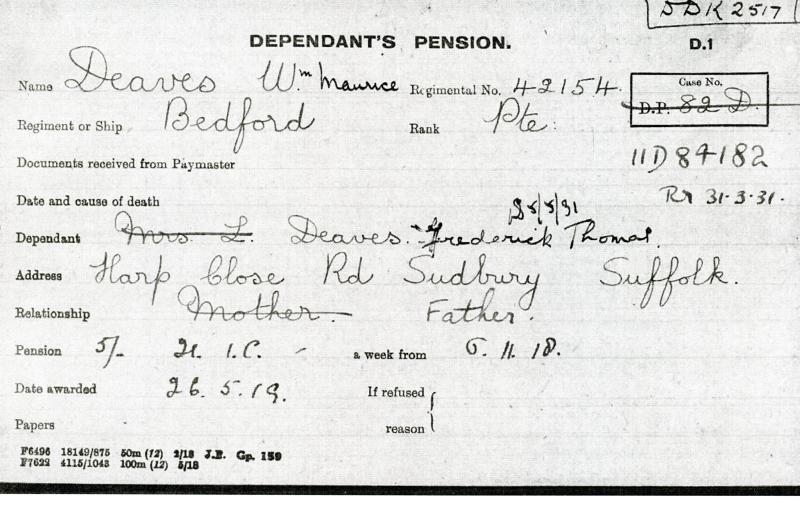 DDK 2517
DEPENDANT'S PENSION.
D.1
Name Deaves Wm Maurice Regimental No. 42154.
Case No.
D.P. 82 D.
Regiment or Ship Bedford Rank Pte.
Documents received from Paymaster
11D84182
Date and cause of death
Rr 31.3.31.
5/5/31
Dependant Mrs. L. Deaves. Frederick Thomas.
Address Harp Close Rd Sudbury Suffolk.
Relationship Mother. Father.
Pension 5/- I.C. - a week from 11. 18.
Date awarded 26. 5. 19. If refused
Papers reason
F6496 18149/875 50m (12) 2/18 J.B. Gp. 159
F7622 4115/1043 100m (12) 5/18